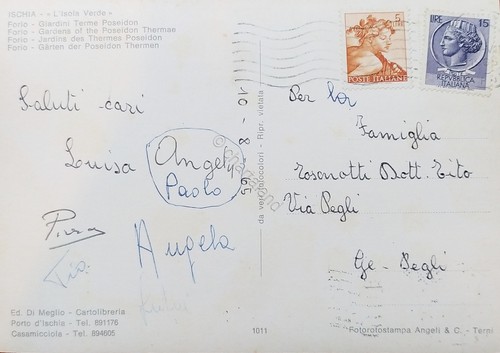 ISCHIA - « L'Isola Verde »
Forio - Giardini Terme Poseidon
Forio - Gardens of the Poseidon Thermae
Forio - Jardins des Thermes Poseidon
Forio - Gärten der Poseidon Thermen
Saluti cari
Luisa Angelo
Paolo
Piera
Tia.
Angela
Ed. Di Meglio - Cartolibreria
Porto d'Ischia - Tel. 891176
Casamicciola - Tel. 894605
1011
da verofotocolori - Ripr. vietata
10-8-65
5
LIRE
POSTE ITALIANE
LIRE 15
REPVBBLICA
ITALIANA
Per la
Famiglia
Tosonotti Dott. Tito
Via Pegli
Ge-Pegli
Fotorotostampa Angeli & C. - Terni